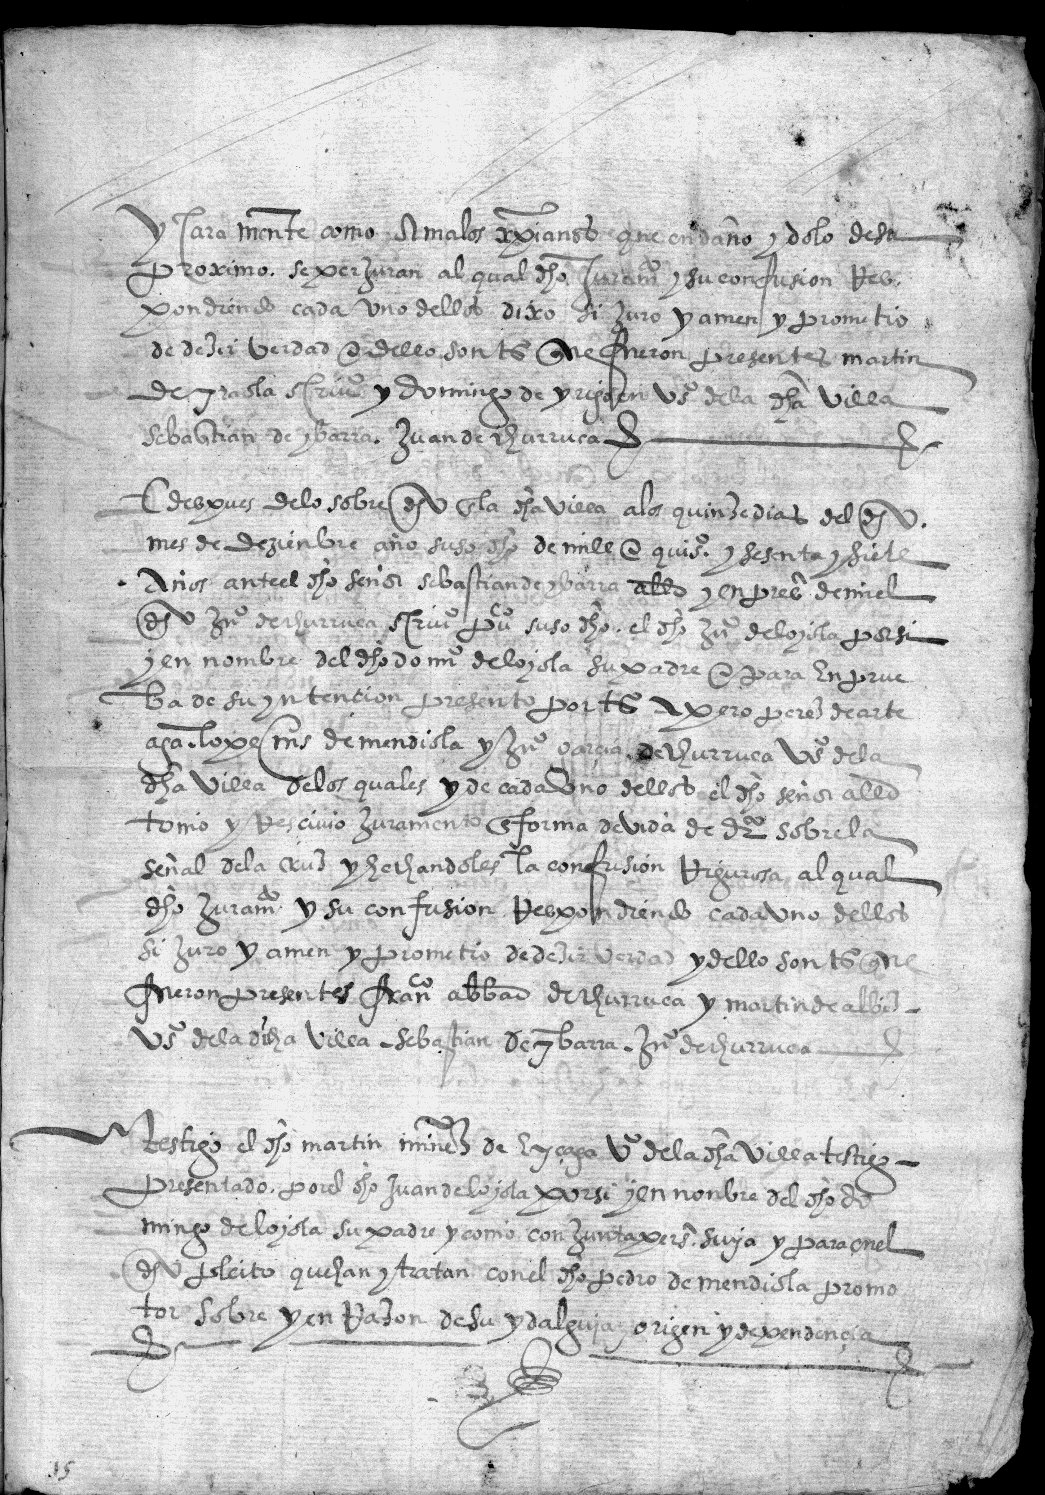 y clara mente como A malos xpianos que en daño y dolo de su
proximo. se perjuran al qual dho Juramto y su confusion Res
pondiendo cada uno dellos dixo si juro y amen y prometio
de dezir verdad e dello son ts que fueron presentes martin
de yrasla scriuo y domingo de yrigoen vos dela dha villa
sebastian de ybarra. Juan de churruca
E despues delo sobre dho en la dha villa alos quinze dias del dho
mes de dezienbre año suso dho de mill e quios. y sesenta y siete
Años ante el dho señor sebastian de ybarra allde y en presa de mi el
dho Juo de churruca scriuo puco suso dho. el dho Juo de loyola por si
y en nombre del dho domo de loyola su padre e para en prue
ba de su yntencion presento por ts A pero perez de arte
aga. lope mis de mendiola y Juo garcia de churruca vos dela
dha villa delos quales y de cada uno dellos el dho señor allde
tomo y Rescivio juramento en forma devida de dro sobre la
señal dela cruz y hechandoles la confusion Rigurosa al qual
dho juramto y su confusion Respondiendo cada uno dellos
si juro y amen y prometio de dezir verdad y dello son ts que
fueron presentes franco abbad de churruca y martin de albiz
vos dela dicha villa sebastian de ybarra. Juo de churruca
Testigo el dho martin minez de vo dela dha villa testigo
presentado. por el dho Juan de loyola por si y en nonbre del dho do
mingo de loyola su padre y como conjunta persa. suya y para en el
dho pleito que han y tratan con el dho pedro de mendiola promo
tor sobre y en Razon de su ydalguia origen y dependencia
15